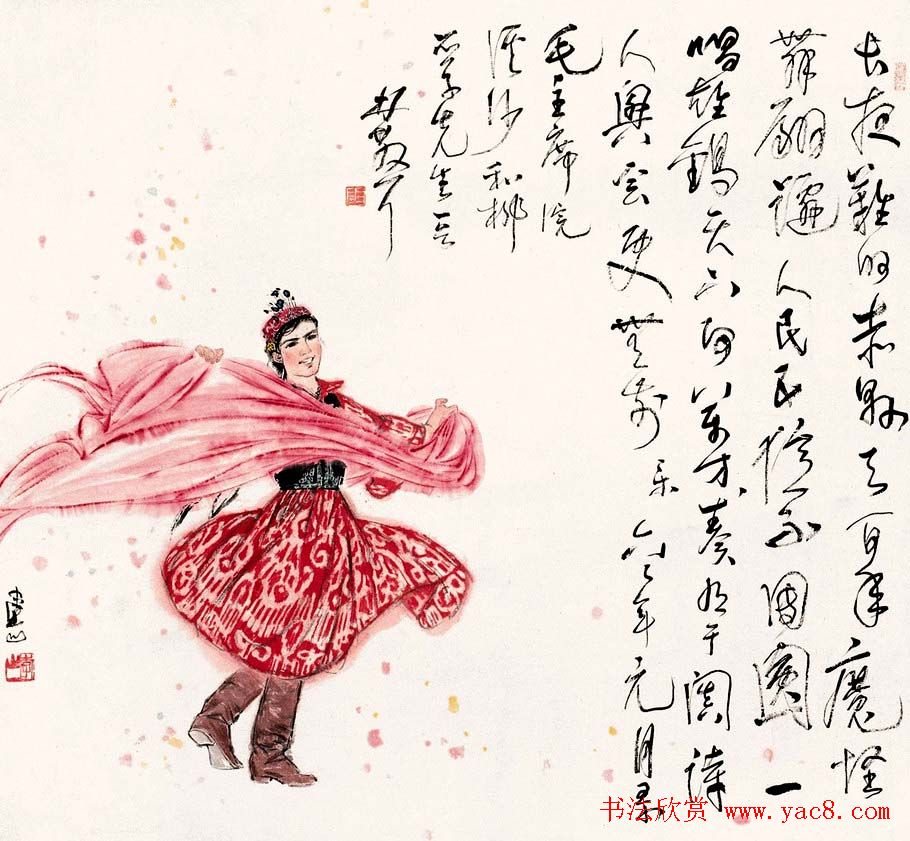 長夜難明赤縣天百年魔怪
舞翩躚人民五億不團圓一
唱雄鷄天下白萬方樂奏有于闐詩
人興會更無前 年元月
毛主席浣
溪沙和柳
亞子先生
林散耳
书法欣赏 www.yac8.com